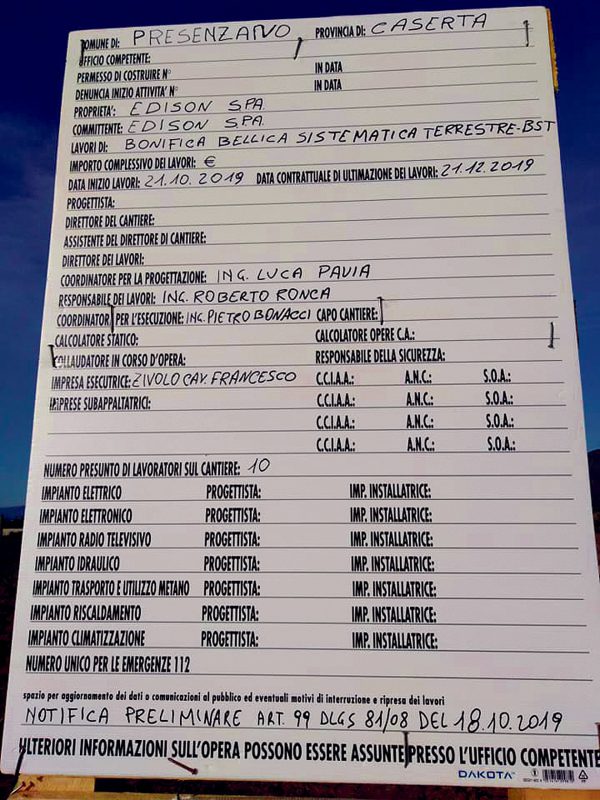 COMUNE DI: PRESENZANO PROVINCIA DI: CASERTA
UFFICIO COMPETENTE:
PERMESSO DI COSTRUIRE N° IN DATA
DENUNCIA INIZIO ATTIVITA' N° IN DATA
PROPRIETA': EDISON SPA.
COMMITTENTE: EDISON SPA.
LAVORI DI: BONIFICA BELLICA SISTEMATICA TERRESTRE-BST
IMPORTO COMPLESSIVO DEI LAVORI: €
DATA INIZIO LAVORI: 21.10.2019 DATA CONTRATTUALE DI ULTIMAZIONE DEI LAVORI: 21.12.2019
PROGETTISTA:
DIRETTORE DEL CANTIERE:
ASSISTENTE DEL DIRETTORE DI CANTIERE:
DIRETTORE DEI LAVORI:
COORDINATORE PER LA PROGETTAZIONE: ING. LUCA PAVIA
RESPONSABILE DEI LAVORI: ING. ROBERTO RONCA
COORDINATORE PER L'ESECUZIONE: ING. PIETRO BONACCI CAPO CANTIERE:
CALCOLATORE STATICO: CALCOLATORE OPERE C.A.:
COLLAUDATORE IN CORSO D'OPERA: RESPONSABILE DELLA SICUREZZA:
IMPRESA ESECUTRICE: ZIVOLO CAV. FRANCESCO C.C.I.A.A.: A.N.C.: S.O.A.:
IMPRESE SUBAPPALTATRICI: C.C.I.A.A.: A.N.C.: S.O.A.:
C.C.I.A.A.: A.N.C.: S.O.A.:
C.C.I.A.A.: A.N.C.: S.O.A.:
NUMERO PRESUNTO DI LAVORATORI SUL CANTIERE: 10
IMPIANTO ELETTRICO PROGETTISTA: IMP. INSTALLATRICE:
IMPIANTO ELETTRONICO PROGETTISTA: IMP. INSTALLATRICE:
IMPIANTO RADIO TELEVISIVO PROGETTISTA: IMP. INSTALLATRICE:
IMPIANTO IDRAULICO PROGETTISTA: IMP. INSTALLATRICE:
IMPIANTO TRASPORTO E UTILIZZO METANO PROGETTISTA: IMP. INSTALLATRICE:
IMPIANTO RISCALDAMENTO PROGETTISTA: IMP. INSTALLATRICE:
IMPIANTO CLIMATIZZAZIONE PROGETTISTA: IMP. INSTALLATRICE:
NUMERO UNICO PER LE EMERGENZE 112
spazio per aggiornamento dei dati o comunicazioni al pubblico ed eventuali motivi di interruzione e ripresa dei lavori
NOTIFICA PRELIMINARE ART. 99 DLGS 81/08 DEL 18.10.2019
ULTERIORI INFORMAZIONI SULL'OPERA POSSONO ESSERE ASSUNTE PRESSO L'UFFICIO COMPETENTE
DAKOTA